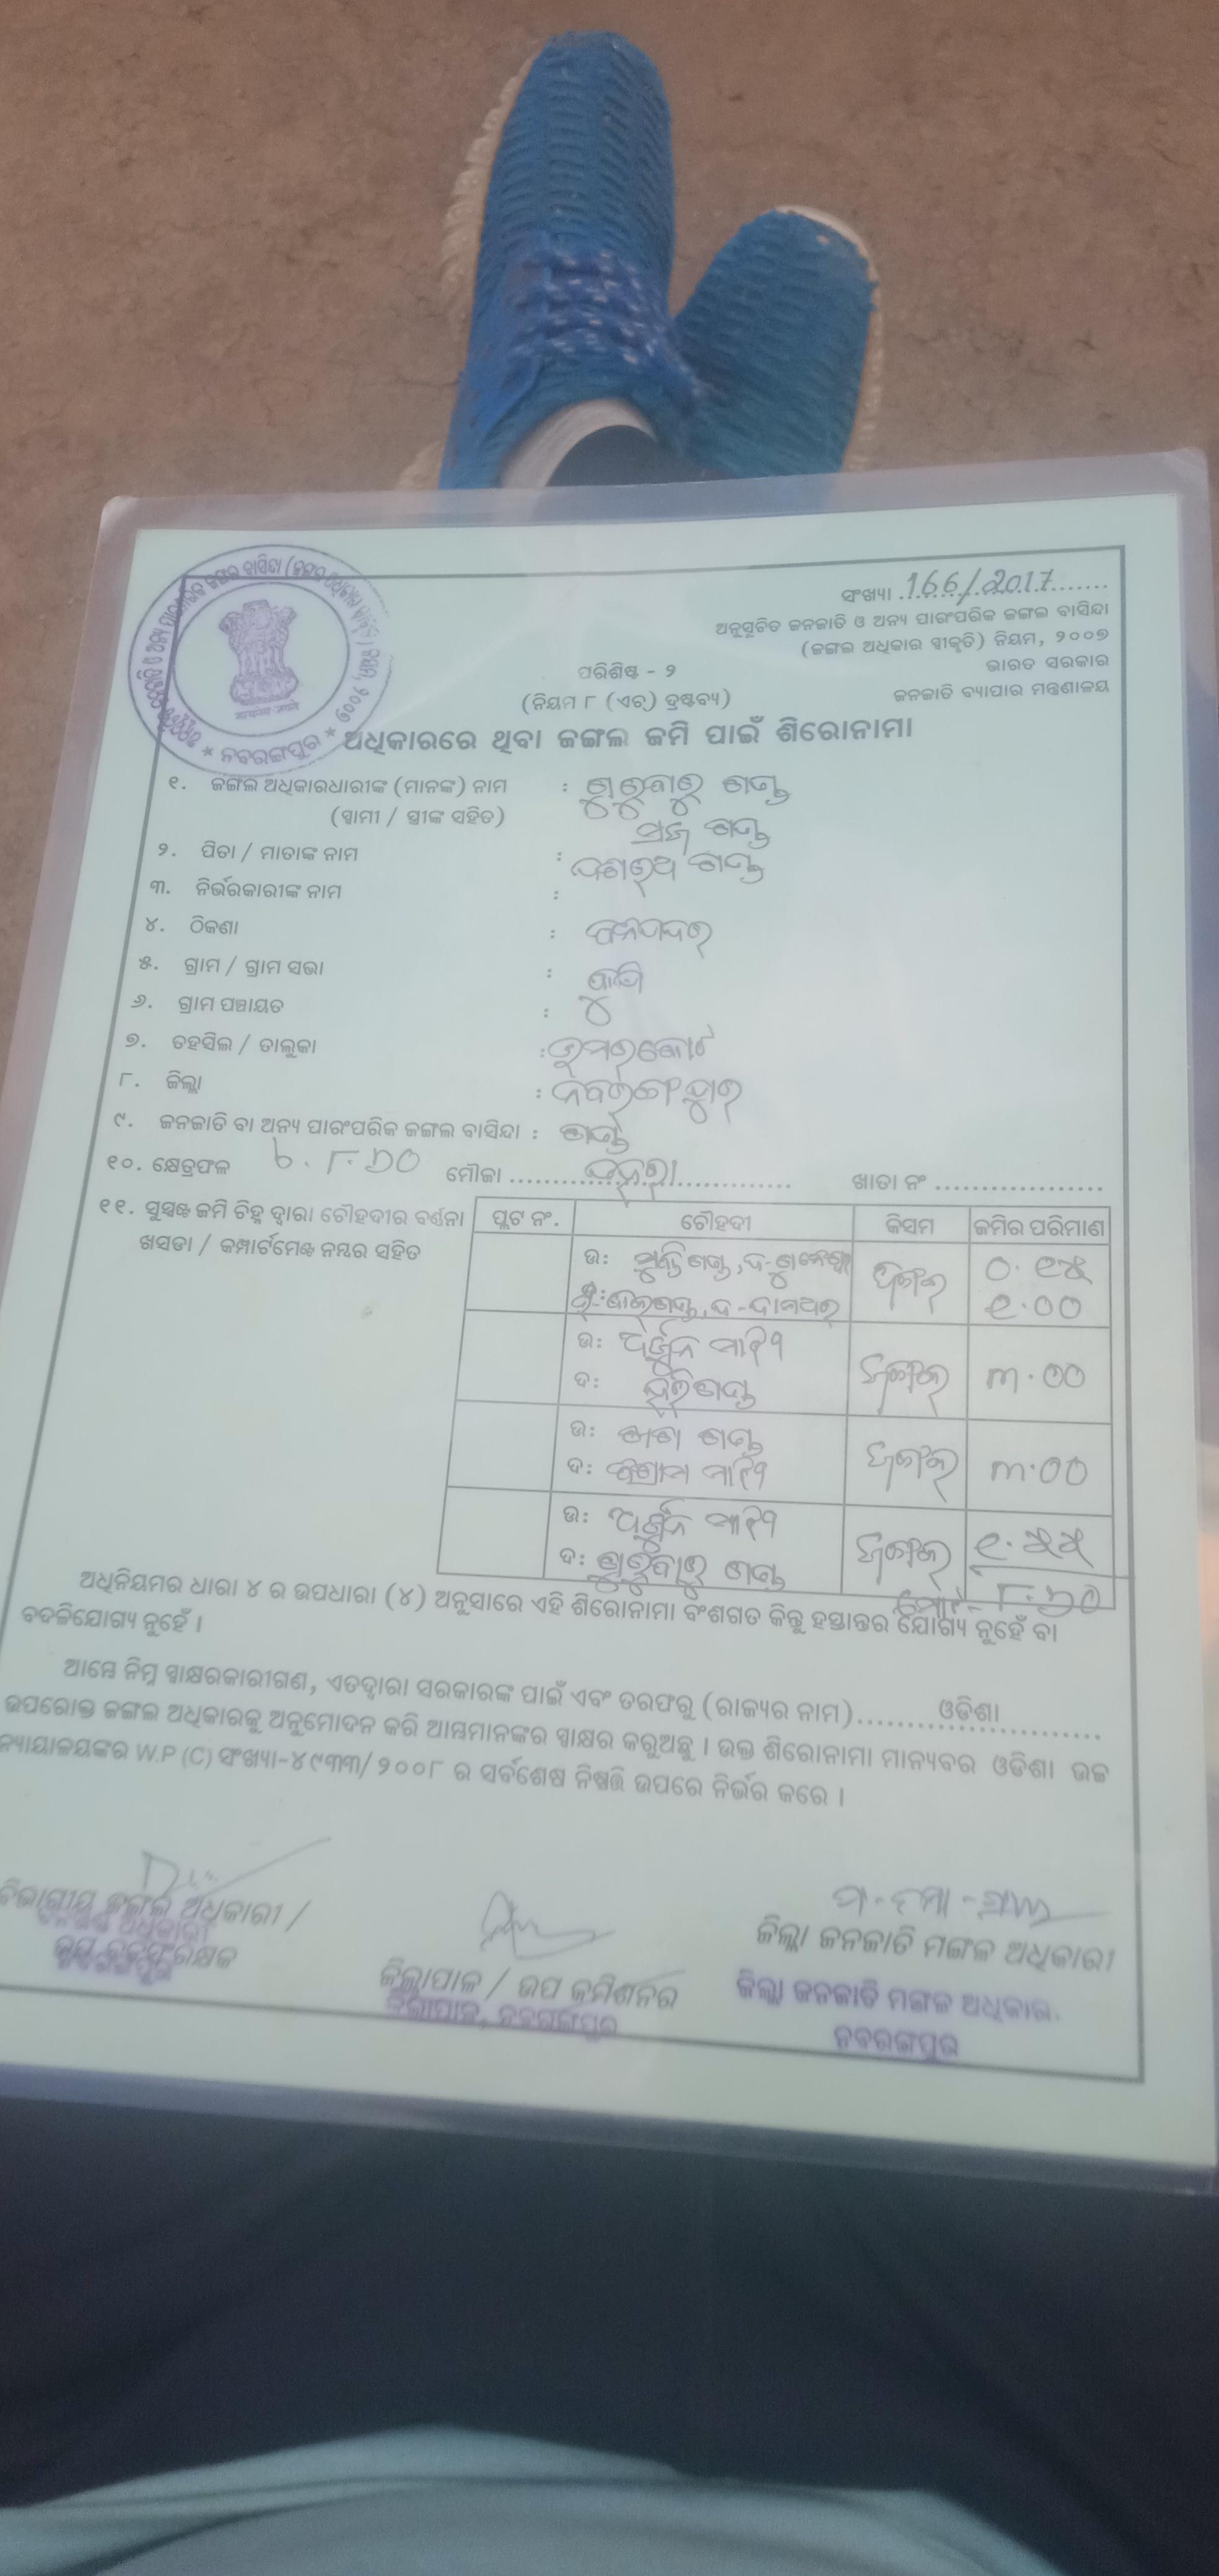 ସଂଖ୍ୟା 166/2017
ଅନୁସୂଚିତ ଜନଜାତି ଓ ଅନ୍ୟ ପାରଂପରିକ ଜଙ୍ଗଲ ବାସିନ୍ଦା
(ଜଙ୍ଗଲ ଅଧିକାର ସ୍ୱୀକୃତି) ନିୟମ, ୨୦୦୭
ଭାରତ ସରକାର
ପରିଶିଷ୍ଟ - ୨
ଜନଜାତି ବ୍ୟାପାର ମନ୍ତ୍ରଣାଳୟ
(ନିୟମ ୮ (ଏଚ୍) ଦ୍ରଷ୍ଟବ୍ୟ)
ନବରଙ୍ଗପୁର
ଅଧିକାରରେ ଥିବା ଜଙ୍ଗଲ ଜମି ପାଇଁ ଶିରୋନାମା
୧. ଜଙ୍ଗଲ ଅଧିକାରଧାରୀଙ୍କ (ମାନଙ୍କ) ନାମ : ଗୁରୁବାରୁ ଗଣ୍ଡ
(ସ୍ୱାମୀ / ସ୍ତ୍ରୀଙ୍କ ସହିତ) ଗଣ୍ଡ
୨. ପିତା / ମାତାଙ୍କ ନାମ : ଦଶରଥ ଗଣ୍ଡ
୩. ନିର୍ଭରକାରୀଙ୍କ ନାମ :
୪. ଠିକଣା :
୫. ଗ୍ରାମ / ଗ୍ରାମ ସଭା :
୬. ଗ୍ରାମ ପଞ୍ଚାୟତ :
୭. ତହସିଲ / ତାଲୁକା : ଉମରକୋଟ
୮. ଜିଲ୍ଲା : ନବରଙ୍ଗପୁର
୯. ଜନଜାତି ବା ଅନ୍ୟ ପାରଂପରିକ ଜଙ୍ଗଲ ବାସିନ୍ଦା : ଗଣ୍ଡ
୧୦. କ୍ଷେତ୍ରଫଳ ୮.୬୦ ମୌଜା ଖାତା ନଂ
୧୧. ସୁସ୍ପଷ୍ଟ ଜମି ଚିହ୍ନ ଦ୍ୱାରା ଚୌହଦୀର ବର୍ଣ୍ଣନା
ଖସଡା / କମ୍ପାର୍ଟମେଣ୍ଟ ନମ୍ବର ସହିତ
ପ୍ଲଟ ନଂ. ଚୌହଦୀ କିସମ ଜମିର ପରିମାଣ
ଉ: ଗଣ୍ଡ ଜଙ୍ଗଲ ୦.୧୫
୧.୦୦
ଉ: ଅର୍ଜୁନ ମାଝୀ ଜଙ୍ଗଲ ୩.୦୦
ଦ: ହରି ଗଣ୍ଡ
ଉ: ଗଣ୍ଡ ଜଙ୍ଗଲ ୩.୦୦
ଦ: ମାଝୀ
ଉ: ଅର୍ଜୁନ ମାଝୀ ଜଙ୍ଗଲ ୧.୫୫
ଦ: ଗୁରୁବାରୁ ଗଣ୍ଡ
ମୋଟ - ୮.୬୦
ଅଧିନିୟମର ଧାରା ୪ ର ଉପଧାରା (୪) ଅନୁସାରେ ଏହି ଶିରୋନାମା ବଂଶଗତ କିନ୍ତୁ ହସ୍ତାନ୍ତର ଯୋଗ୍ୟ ନୁହେଁ ବା
ବଦଳିଯୋଗ୍ୟ ନୁହେଁ ।
ଆମ୍ଭେ ନିମ୍ନ ସ୍ୱାକ୍ଷରକାରୀଗଣ, ଏତଦ୍ୱାରା ସରକାରଙ୍କ ପାଇଁ ଏବଂ ତରଫରୁ (ରାଜ୍ୟର ନାମ) ଓଡିଶା
ଉପରୋକ୍ତ ଜଙ୍ଗଲ ଅଧିକାରକୁ ଅନୁମୋଦନ କରି ଆମ୍ଭମାନଙ୍କର ସ୍ୱାକ୍ଷର କରୁଅଛୁ । ଉକ୍ତ ଶିରୋନାମା ମାନ୍ୟବର ଓଡିଶା ଉଚ୍ଚ
ନ୍ୟାୟାଳୟଙ୍କର W.P (C) ସଂଖ୍ୟା-୪୯୩୩/ ୨୦୦୮ ର ସର୍ବଶେଷ ନିଷ୍ପତ୍ତି ଉପରେ ନିର୍ଭର କରେ ।
ବିଭାଗୀୟ ଜଙ୍ଗଲ ଅଧିକାରୀ /
ଜିଲ୍ଲାପାଳ / ଉପ କମିଶନର
ଜିଲ୍ଲାପାଳ, ନବରଙ୍ଗପୁର
ଜିଲ୍ଲା ଜନଜାତି ମଙ୍ଗଳ ଅଧିକାରୀ
ଜିଲ୍ଲା ଜନଜାତି ମଙ୍ଗଳ ଅଧିକାରୀ
ନବରଙ୍ଗପୁର